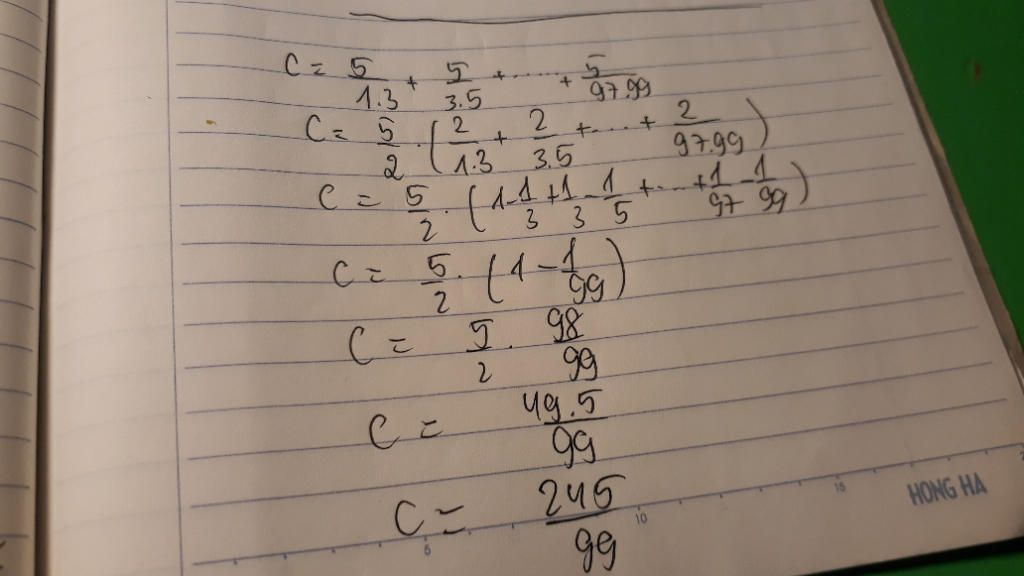 C = 5/1.3 + 5/3.5 + ..... + 5/97.99
C = 5/2 . (2/1.3 + 2/3.5 + ... + 2/97.99)
C = 5/2 . (1 - 1/3 + 1/3 - 1/5 + ... + 1/97 - 1/99)
C = 5/2 . (1 - 1/99)
C = 5/2 . 98/99
C = 49.5/99
C = 245/99
5 10 15
HONG HA